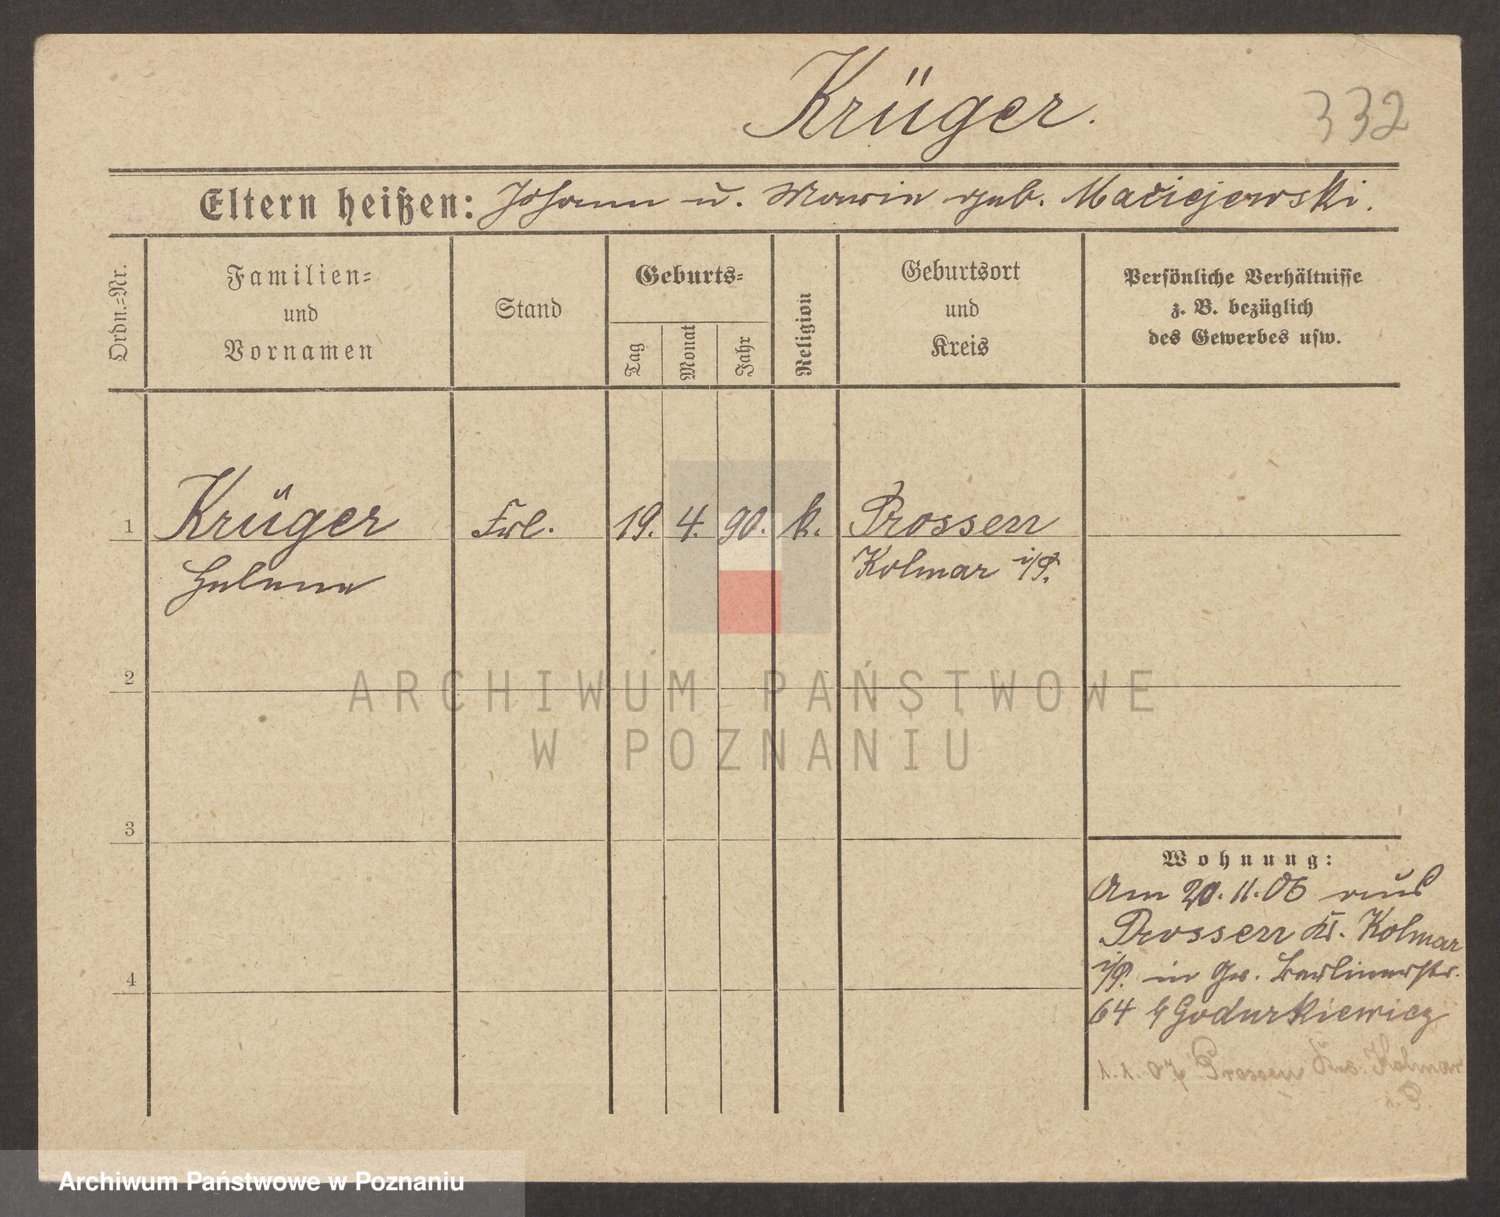 Krüger.
332
Eltern heißen: Johann u. Marie geb. Maciejewski.
Ordn.-Nr.
Familien-
und
Vornamen
Stand
Geburts-
Tag
Monat
Jahr
Religion
Geburtsort
und
Kreis
Persönliche Verhältnisse
z. B. bezüglich
des Gewerbes usw.
1 Krüger Frl. 19. 4. 90. k. Prossen
Helene Kolmar i/P.
2
3
4
ARCHIWUM PAŃSTWOWE
W POZNANIU
Wohnung:
Am 20.11.06 aus
Prossen Kr. Kolmar
i/P. in Gr. Berlinerstr.
64 b Godurkiewicz
1.1.07 Prossen Kolmar
P.
Archiwum Państwowe w Poznaniu